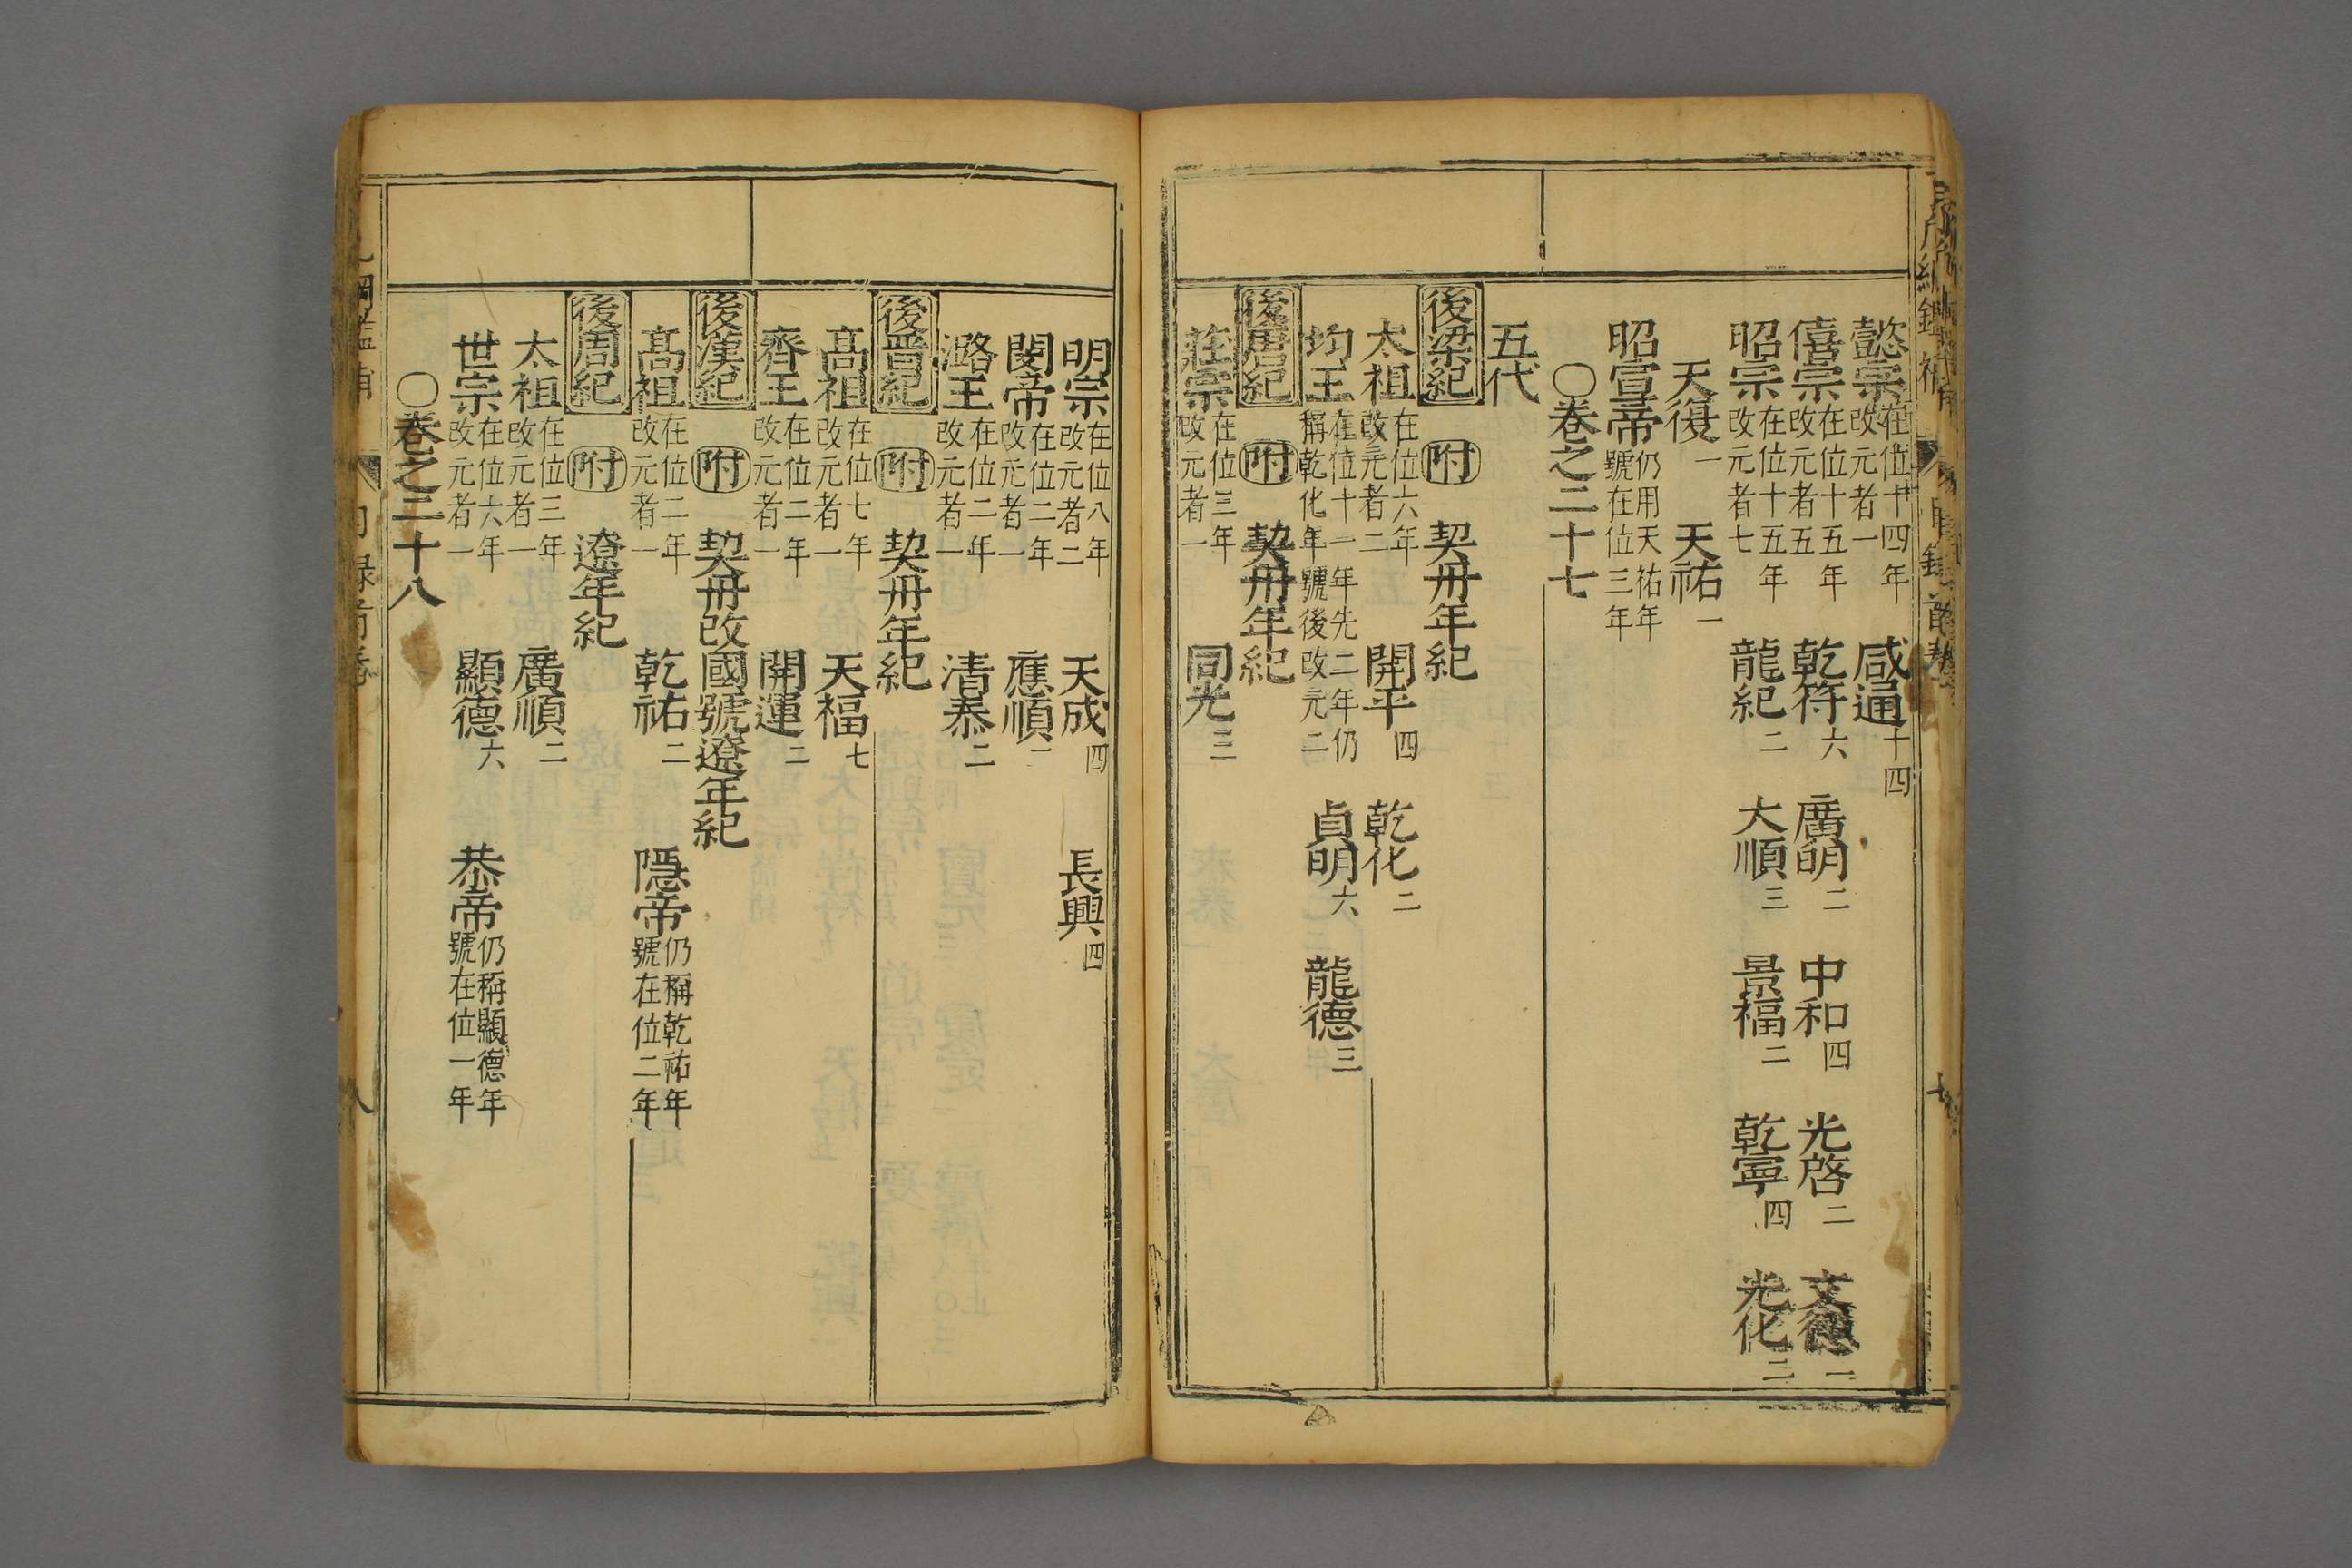 懿宗在位十四年改元者一 咸通十四
僖宗在位十五年改元者五 乾符六 廣明二 中和四 光啓二 文德一
昭宗在位十五年改元者七 龍紀二 大順三 景福二 乾寧四 光化二
天復一 天祐一
昭宣帝仍用天祐年號在位三年
○卷之二十七
五代
後梁紀 附 契丹年紀
太祖在位六年改元者二 開平四 乾化二
均王在位十一年先二年仍稱乾化年號後改元二 貞明六 龍德三
後唐紀 附 契丹年紀
莊宗在位三年改元者一 同光三
明宗在位八年改元者二 天成四 長興四
閔帝在位二年改元者一 應順一
潞王在位二年改元者一 清泰二
後晉紀 附 契丹年紀
高祖在位七年改元者一 天福七
齊王在位二年改元者一 開運二
後漢紀 附 契丹改國號遼年紀
高祖在位二年改元者一 乾祐二 隱帝仍稱乾祐年號在位二年
後周紀 附 遼年紀
太祖在位三年改元者一 廣順二
世宗在位六年改元者一 顯德六 恭帝仍稱顯德年號在位一年
○卷之二十八